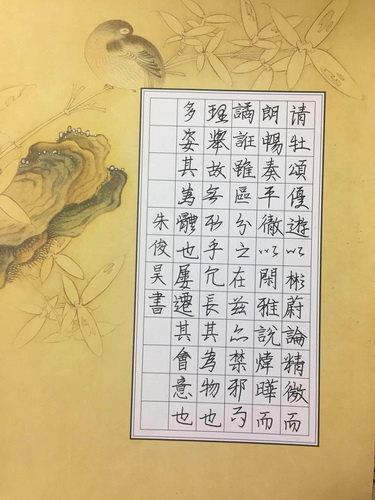 请牡頌優遊以彬蔚論精微而
朗暢奏平徹以閑雅說煒曄而
譎誑雖區分之在兹亦禁邪
理舉故無取乎冗長其為物也
多姿其為體也屢遷其會意也
朱俊昊書